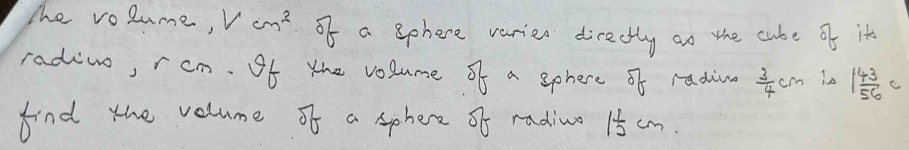 The volume, V cm² of a sphere varies directly as the cube of its
radius, r cm. If the volume of a sphere of radius 3/4 cm is 1 43/56 c
find the volume of a sphere of radius 1 1/2 cm.